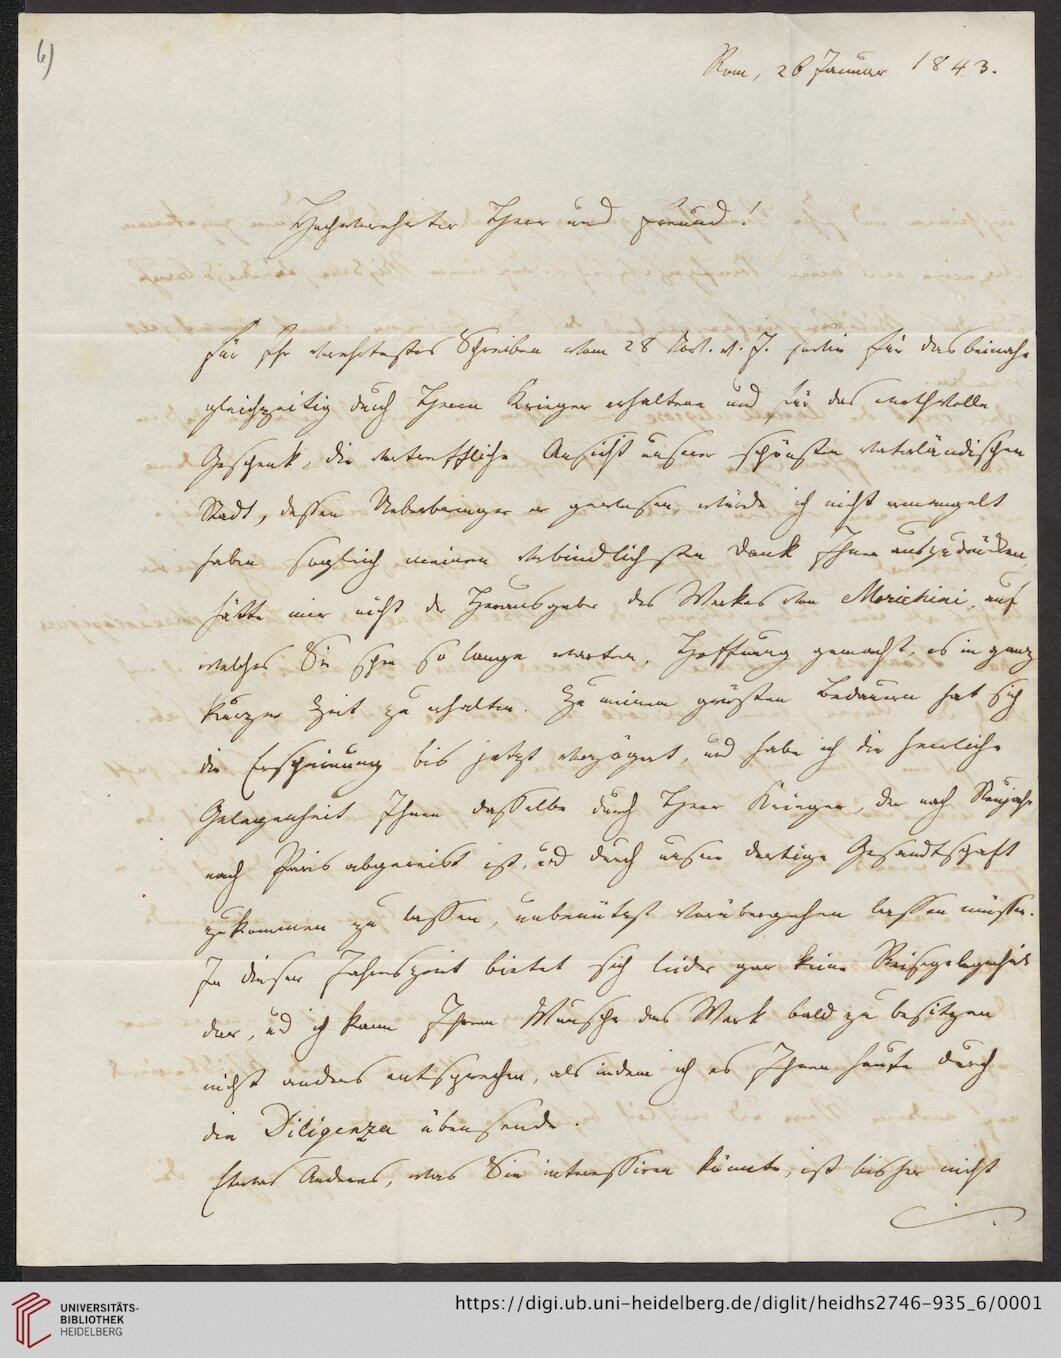 6)
Rom, 26 Januar 1843.
Hochverehrter Herr und Freund!
Für Ihr verehrtestes Schreiben vom 28 Nov. v. J. sowie für das beinahe
gleichzeitig durch Herrn Krieger erhaltene und für das werthvolle
Geschenk, die vortreffliche Ansicht unserer schönsten vaterländischen
Stadt, dessen Ueberbringer er gewesen, würde ich nicht ermangelt
haben sogleich meinen verbindlichsten Dank Ihnen auszudrücken,
hätte mir nicht der Herausgeber des Werkes von Morichini, auf
welches Sie schon so lange warten, Hoffnung gemacht, es in ganz
kurzer Zeit zu erhalten. Zu meinem größten Bedauern hat sich
die Erscheinung bis jetzt verzögert, und habe ich die herrliche
Gelegenheit Ihnen dasselbe durch Herr Krieger, der nach Neujahr
nach Paris abgereist ist, und durch unsere dortige Gesandtschaft
zukommen zu lassen, unbenützt vorübergehen lassen müssen.
In dieser Jahreszeit bietet sich leider gar keine Reisegelegenheit
dar, und ich kann Ihrem Wunsche das Werk bald zu besitzen
nicht anders entsprechen, als indem ich es Ihnen heute durch
die Diligenza übersende.
Etwas Anderes, was Sie interessiren könnte, ist bisher nicht
UNIVERSITÄTS-
BIBLIOTHEK
HEIDELBERG
https://digi.ub.uni-heidelberg.de/diglit/heidhs2746-935_6/0001